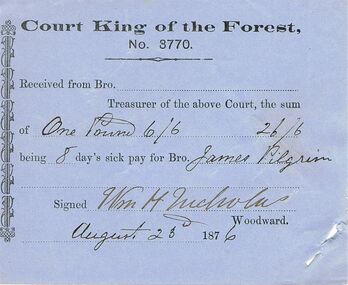 Court King of the Forest,
No. 3770.
Received from Bro.
Treasurer of the above Court, the sum
of One Pound 6/6 26/6
being 8 day's sick pay for Bro. James Pilgrim
Signed Wm H Nicholas
Woodward.
August 23d 1876